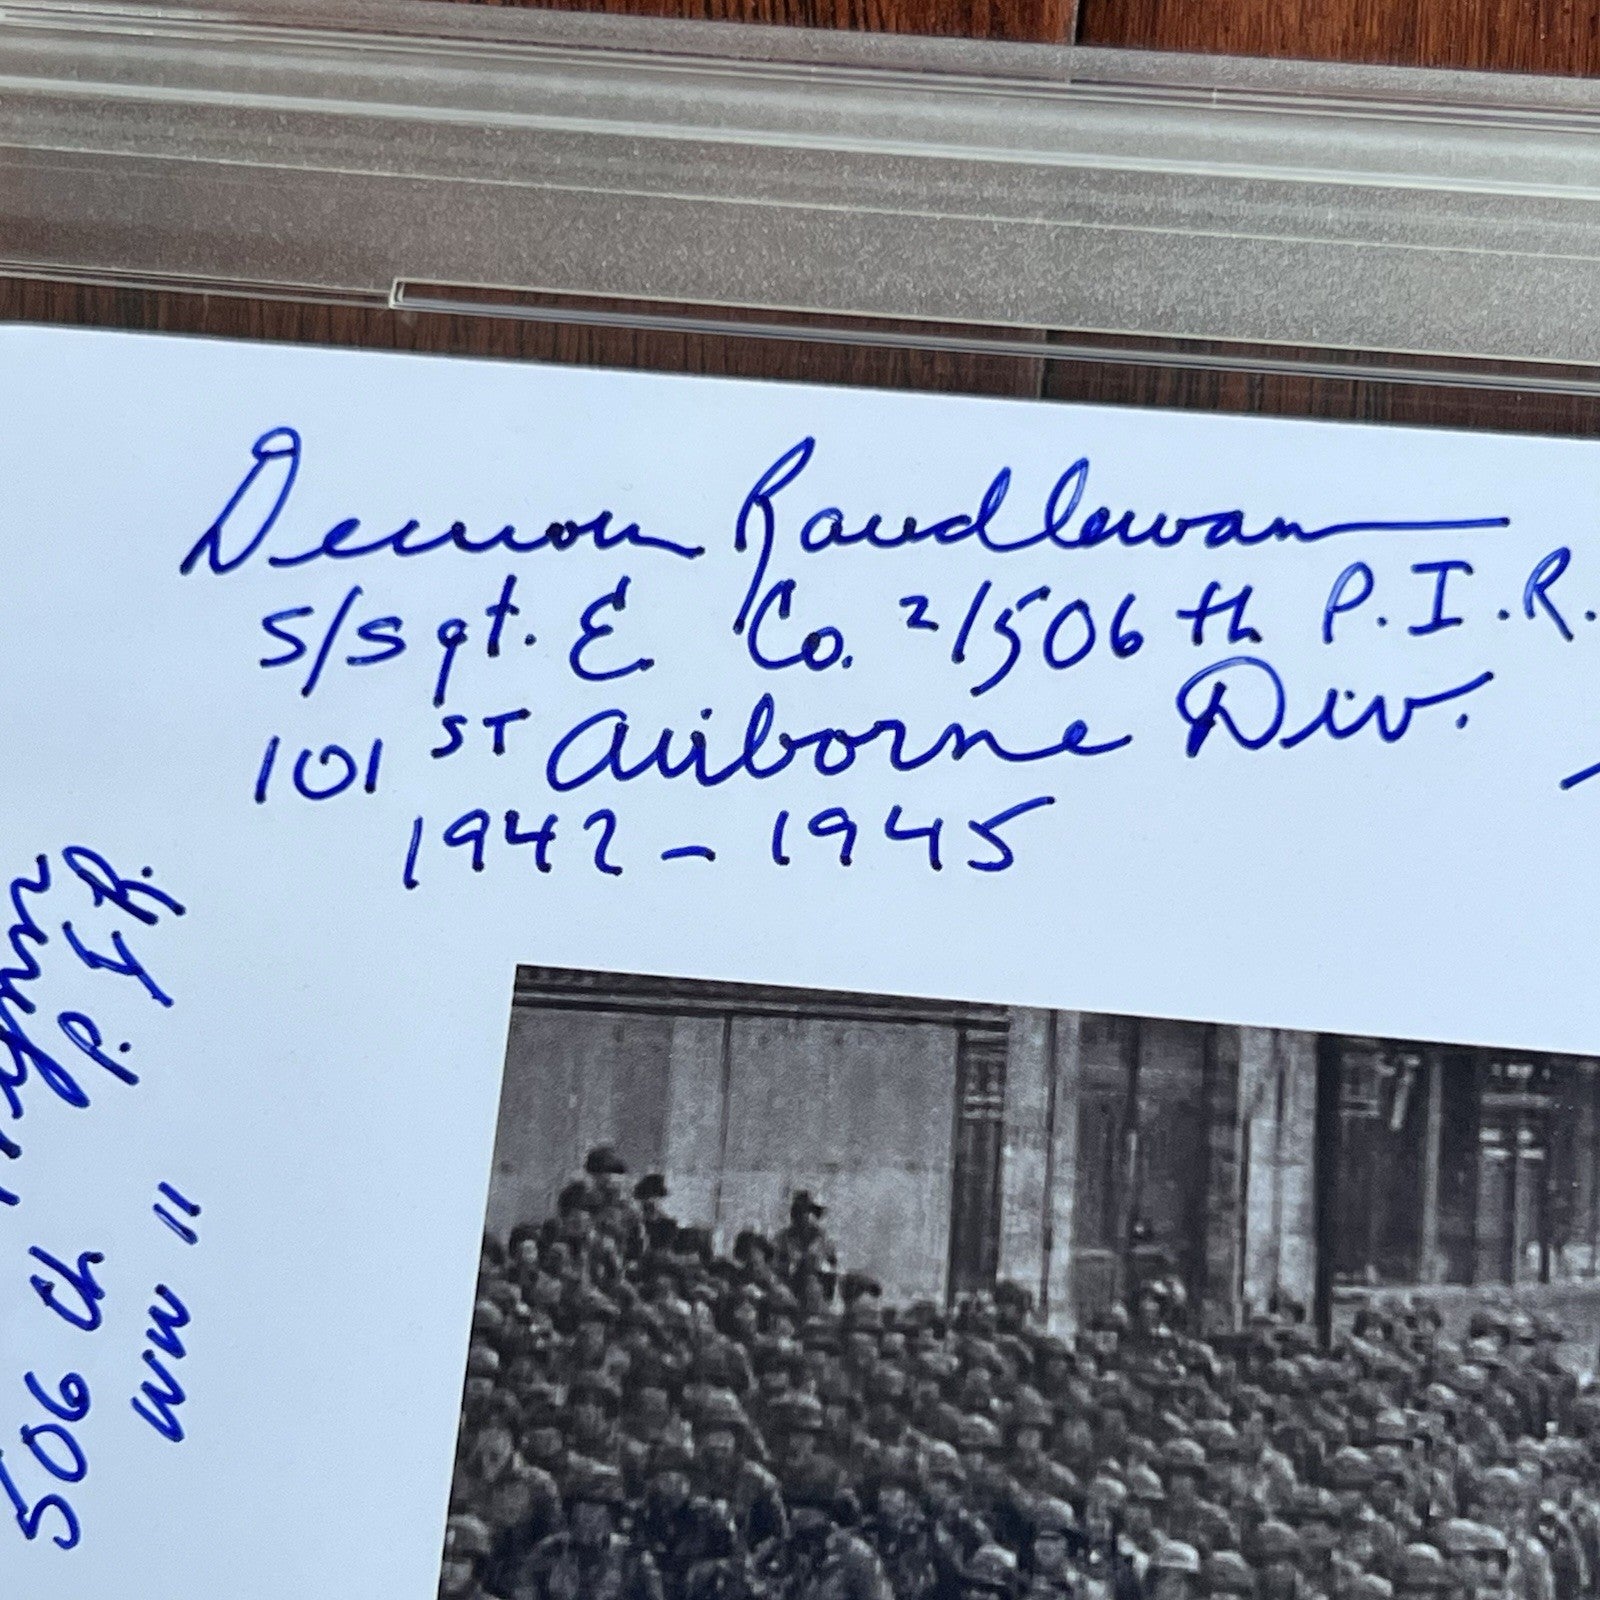 Denver Randleman
S/Sgt. E. Co. 2/506 th P.I.R.
101 ST Airborne Div.
1942 - 1945
506 th P. I. R.
WW II